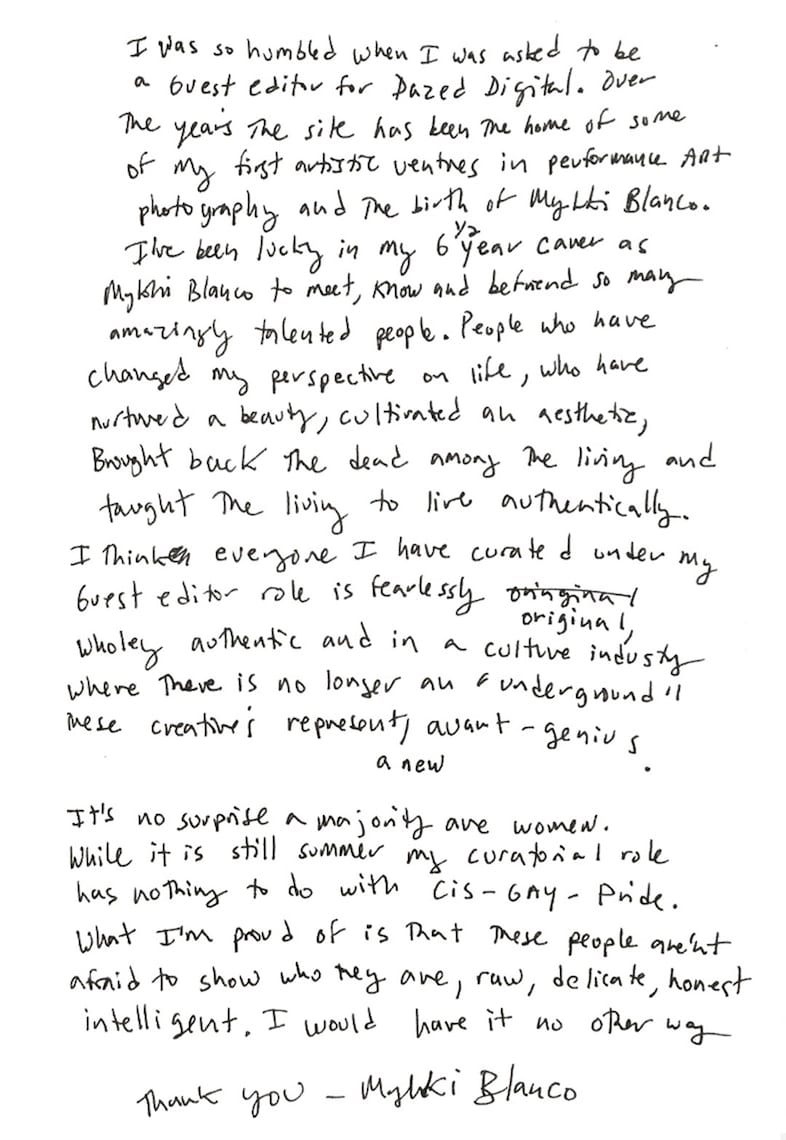 I was so humbled when I was asked to be
a Guest editor for Dazed Digital. Over
The years The site has been The home of some
of my first artistic ventures in performance Art
photography and The birth of Mykki Blanco.
I've been lucky in my 6 1/2 year career as
Mykki Blanco to meet, know and befriend so many
amazingly talented people. People who have
changed my perspective on life, who have
nurtured a beauty, cultivated an aesthetic,
Brought back The dead among The living and
taught The living to live authentically.
I Think everyone I have curated under my
Guest editor role is fearlessly oringinal
original,
wholey authentic and in a culture industy
where There is no longer an "underground"
These creative's represent, avant-genius.
a new
It's no surprise a majority are women.
While it is still summer my curatorial role
has nothing to do with Cis-GAY-Pride.
What I'm proud of is That These people are'nt
afraid to show who they are, raw, delicate, honest
intelligent. I would have it no other way
Thank you - Mykki Blanco